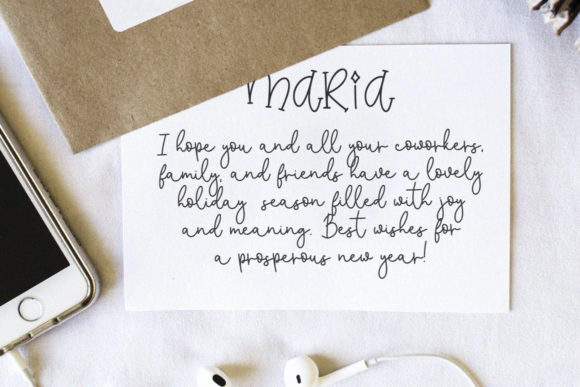 Maria
I hope you and all your coworkers,
family, and friends have a lovely
holiday season filled with joy
and meaning. Best wishes for
a prosperous new year!